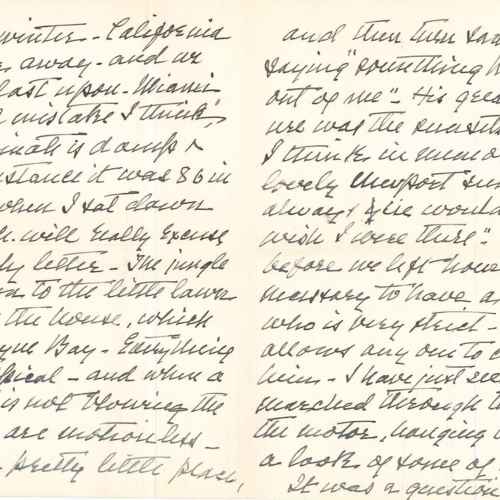 winter - California
away - and we
last upon - Miami
mistake I think,
is damp &
it was 86 in
when I sat down
will really excuse
letter - The jungle
to the little lawn
the house, which
Bay - Everything
- and when a
is not blowing the
are motionless -
pretty little place,
and then turn
saying "something
out of me" - His
was the
I think in
lovely Newport
always & he would
wish I were there" -
before we left
necessary to have a
who is very strict -
allows any one to
him - I have just
marched through
the motor, hanging
a look of some of
It was a question